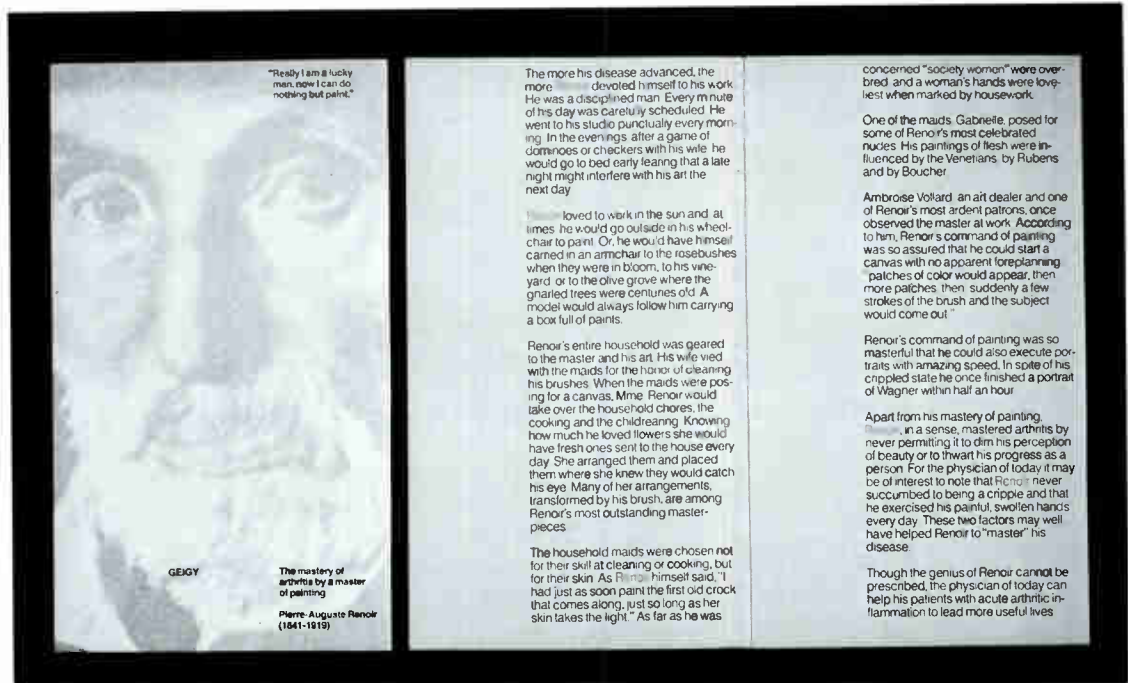 "Really I am a lucky
man, now I can do
nothing but paint."
GEIGY
The mastery of
arthritis by a master
of painting
Pierre-Auguste Renoir
(1841-1919)
The more his disease advanced, the
more devoted himself to his work
He was a disciplined man Every minute
of his day was carefully scheduled He
went to his studio punctually every morn-
ing In the evenings after a game of
dominoes or checkers with his wife he
would go to bed early fearing that a late
night might interfere with his art the
next day
loved to work in the sun and at
times he would go outside in his wheel-
chair to paint Or, he would have himself
carried in an armchair to the rosebushes
when they were in bloom, to his vine-
yard or to the olive grove where the
gnarled trees were centuries old A
model would always follow him carrying
a box full of paints.
Renoir's entire household was geared
to the master and his art His wife vied
with the maids for the honor of cleaning
his brushes When the maids were pos-
ing for a canvas, Mme Renoir would
take over the household chores, the
cooking and the childrearing Knowing
how much he loved flowers she would
have fresh ones sent to the house every
day She arranged them and placed
them where she knew they would catch
his eye Many of her arrangements,
transformed by his brush, are among
Renoir's most outstanding master-
pieces
The household maids were chosen not
for their skill at cleaning or cooking, but
for their skin As Renoir himself said, "I
had just as soon paint the first old crock
that comes along, just so long as her
skin takes the light." As far as he was
concerned "society women" were over-
bred and a woman's hands were love-
liest when marked by housework
One of the maids Gabrielle, posed for
some of Renoir's most celebrated
nudes His paintings of flesh were in-
fluenced by the Venetians by Rubens
and by Boucher
Ambroise Vollard an art dealer and one
of Renoir's most ardent patrons, once
observed the master at work According
to him, Renoir's command of painting
was so assured that he could start a
canvas with no apparent foreplanning
"patches of color would appear, then
more patches, then suddenly a few
strokes of the brush and the subject
would come out "
Renoir's command of painting was so
masterful that he could also execute por-
traits with amazing speed, In spite of his
crippled state he once finished a portrait
of Wagner within half an hour
Apart from his mastery of painting,
, in a sense, mastered arthritis by
never permitting it to dim his perception
of beauty or to thwart his progress as a
person For the physician of today it may
be of interest to note that Renoir never
succumbed to being a cripple and that
he exercised his painful, swollen hands
every day These two factors may well
have helped Renoir to "master" his
disease
Though the genius of Renoir cannot be
prescribed, the physician of today can
help his patients with acute arthritic in-
flammation to lead more useful lives